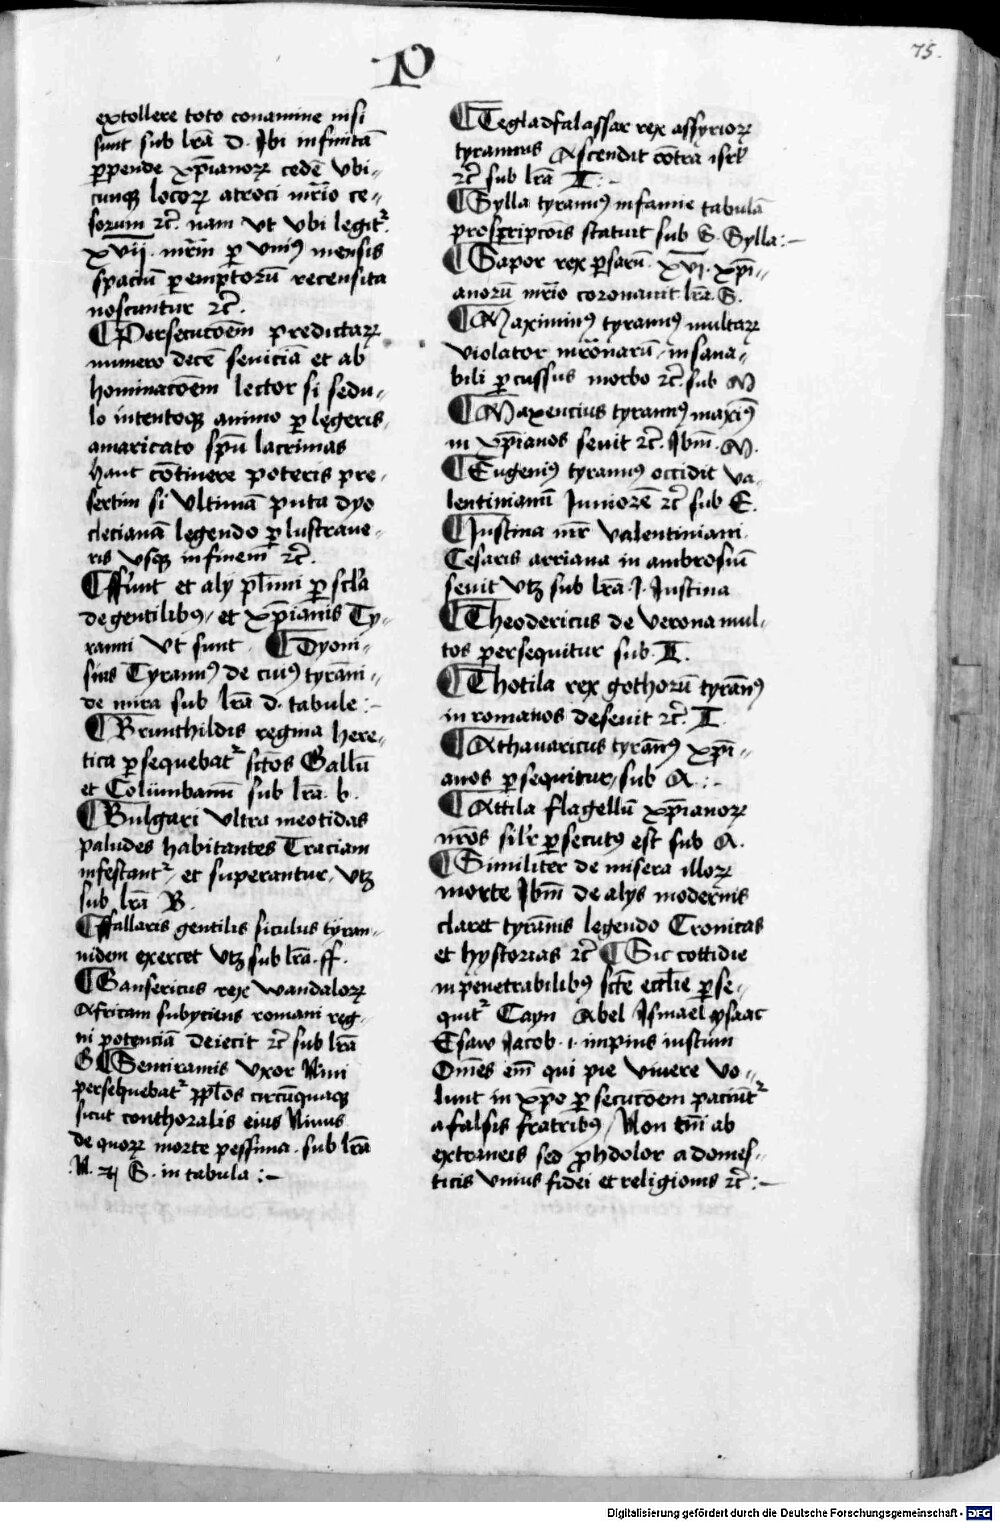 P
75.
extollere toto conamine nisi
sunt sub lr̄a d. Ibi infinitā
ꝑpende xp̄ianoꝝ cedē Vbi-
cunqꝫ locoꝝ atroci mr̄io ce-
sorum ⁊c̄. nam vt Vbi legit᷑
xvij. mr̄m ꝑ vniꝰ mensis
spaciū ꝑemptorū recensita
noscuntur ⁊c̄.
¶ Persecucōem predictaꝝ
numero decē seviciā et ab
hominacōem lector si sedu-
lo intentoqꝫ animo ꝑlegeris
amaricato sp̄u lacrimas
haut cōtinere poteris pre-
sertim si Vltimā puta dyo
clecianā legendo ꝑlustrave-
ris vsqꝫ in finem ⁊c̄.
¶ Sunt et aly pl̄imi ꝑ sc̄la
de gentilibꝰ, et xp̄ianis Ty-
ranni vt sunt ¶ Dyoni-
sius Tyrannꝰ de cuiꝰ tyrāni-
de mira sub lr̄a d. tabule :-
¶ Brunhildis regina here-
tica ꝑsequebat᷑ sc̄tos Gallū
et Columbanū sub lr̄a. b.
¶ Bulgari vltra meotidas
paludes habitantes Traciam
infestant᷑, et superantur, vtꝫ
sub lr̄a B.
¶ ffallaris gentilis siculus tyran-
nidem exercet vtꝫ sub lr̄a. ff.
¶ Gansericus rex wandaloꝝ
Africam subyciens romani reg-
ni potenciā deiecit ⁊c̄ sub lr̄a
G ¶ Semiramis vxor Nini
persequebat᷑ pp̄los circūquaqꝫ
sicut conthoralis eius Ninus
de quoꝝ morte pessima. sub lr̄a
.N. et S. in tabula :-
¶ Tegladfalassar rex assyrioꝝ
tyrannus Ascendit cōtra isrł
⁊c̄ sub lr̄a T :-
¶ Sylla tyrannꝰ infamie tabulā
proscripcōis statuit sub S. Sylla :-
¶ Sapor rex ꝑsarū. xvi. xp̄i-
anorū mr̄io coronavit lr̄a. S.
¶ Maximinꝰ tyrannꝰ multaꝝ
violator mr̄onarū, insana-
bili ꝑcussus morbo ⁊c̄. sub M
¶ Maxencius tyrannꝰ maxīꝰ
in xp̄ianos sevit ⁊c̄. Ibm̄. M.
¶ Eugeniꝰ tyrannꝰ occidit va-
lentinianū Iuniorē ⁊c̄ sub E.
¶ Iustina mr̄ valentiniani
Cesaris arriana in ambrosiū
sevit vtꝫ sub lr̄a. I. Iustina
¶ Theodericus de verona mul-
tos persequitur sub. T.
¶ Thotila rex gothorū tyrānꝰ
in romanos desevit ⁊c̄. T
¶ Athanaricus tyrānꝰ xp̄i-
anos ꝑsequitur, sub A. :-
¶ Attila flagellū xp̄ianoꝝ
nr̄os sil'r ꝑsecutꝰ est sub A.
¶ Similiter de misera illoꝝ
morte Ibm̄ de alys modernis
claret tyrānis legendo Cronicas
et hystorias ⁊c̄ ¶ Sic cottidie
in penetrabilibꝰ sc̄te eccl̄ie ꝑse-
quit᷑ Cayn Abel Ismael ysaac
Esaw Iacob. i. impius iustum
Om̄es em̄ qui pie vivere vo-
lunt in xp̄o ꝑsecucōem paciūt᷑
a falsis fratribꝰ, Non tm̄ ab
externeis sed ꝓhdolor a domes-
ticis vnius fidei et religionis ⁊c̄ :-
Digitalisierung gefördert durch die Deutsche Forschungsgemeinschaft - DFG